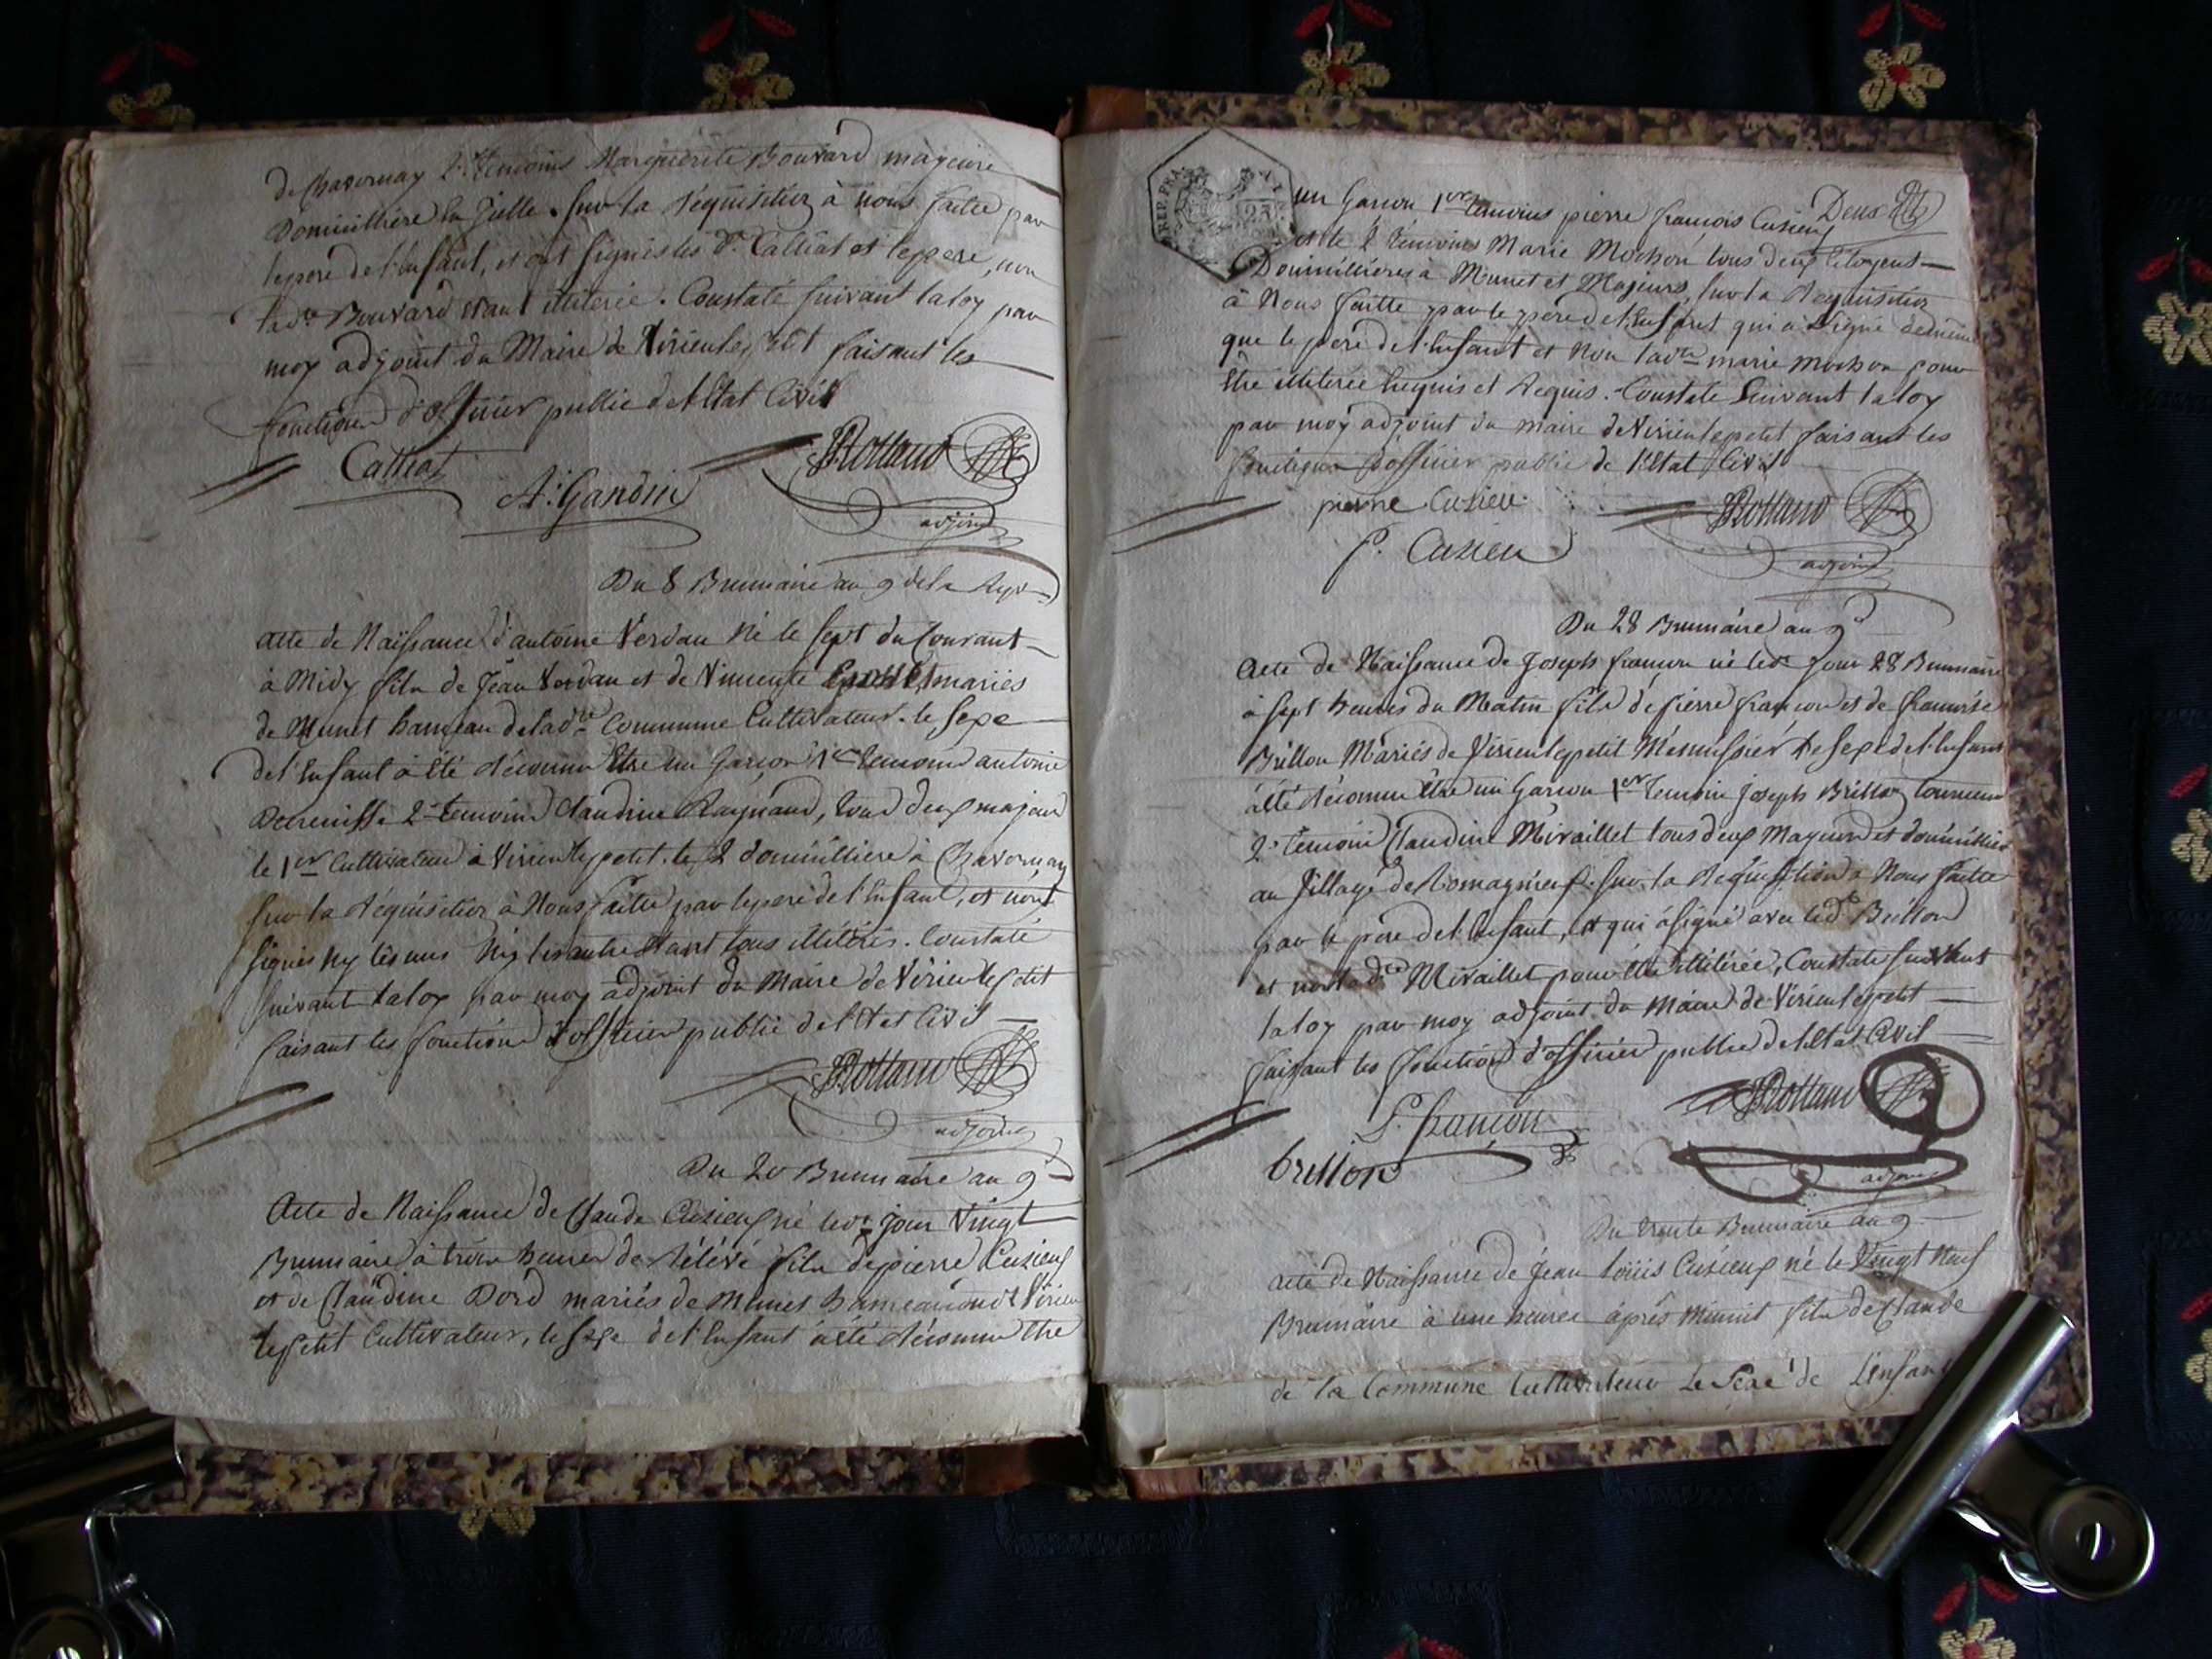 de Chavornay 2e temoins Marguerite Bouvard mageure
Domicilliére la Jielle. sur la réquisition à nous faitte par
le pere de l'enfant, et ont signés les d. Calliat et le pere, non
lad.te Bouvard étant illiterée. Constaté suivant la loy par
moy adjoint du Maire de Virieulepetit faisant les
fonctions d'officier public de l'Etat Civil
Calliat A: Gandin JRolland
adjoint
Du 8 Brumaire an 9 de la Rep.
acte de Naissance d'antoine Verdau né le sept du Courant
à Midy fils de Jean Verdau et de Vincente mariés
de Munet hameau de lad.te Commune Cultivateur. le sexe
de l'enfant à été réconnu être un Garçon 1er temoin antoine
2e temoin Claudine Raynaud, tous deux majeur
le 1er Cultivateur à Virieulepetit. le 2 domicilliere à Chavornay
sur la réquisition à Nous faitte par le pere de l'enfant, et n'ont
signés ny les uns Ny les autre étant tous illitérés. Constaté
suivant la loy par moy adjoint du Maire de Virieulepetit
faisant les fonctions d'officier public de l'Etat Civil
JRolland
adjoint
Du 20 Brumaire an 9
Acte de Naissance de Claude Cuzieux né led. jour Vingt
Brumaire à trois heures de rélévé fils de pierre Cuzieux
et de Claudine Dord mariés de Munet hameau de Virieu
lepetit Cultivateur, le sexe de l'enfant à été réconnu être
REP. FRA.
25
Deux
un Garçon 1er temoins pierre françois Cuzieux
et le 2 temoins Marie Mochon tous deux Citoyens
Domicilliéres à Munet et Majeurs, sur la Requisition
à Nous faitte par le pere de l'enfant qui a Signé de même
que le pere de l'enfant et Non lad.te marie mochon pour
être illiterée Enquis et Requis. Constaté Suivant la loy
par moy adjoint du maire de Virieulepetit faisant les
fonctions d'officier public de l'Etat Civil
pierre Cuzieu JRolland
P. Cuzieu adjoint
Du 28 Brumaire an 9
Acte de Naissance de Joseph françon né led. jour 28 Brumaire
à sept heures du Matin fils de pierre françon et de françoise
Brillon Mariés de Virieulepetit Ménuisier Le sexe de l'enfant
à été réconnu être un Garçon 1er temoin Joseph Brillon tourneur
2e temoin Claudine Miraillet tous deux Mageurs et domicilliés
au Village de Romagnieux. sur la Réquisition à Nous faitte
par le pere de l'enfant, et qui à signé avec led. Brillon
et non lad.te Miraillet pour être illitérée, Constaté suivant
la loy par moy adjoint du Maire de Virieulepetit
faisant les fonctions d'officier public de l'Etat Civil
P. françon JRolland
brillon adjoint
Du trente Brumaire an 9
acte de Naissance de Jean Louis Cuzieux né le Vingt Neuf
Brumaire à une heures après Minuit fils de Claude
de la Commune Cultivateur Le Sexe de L'enfant